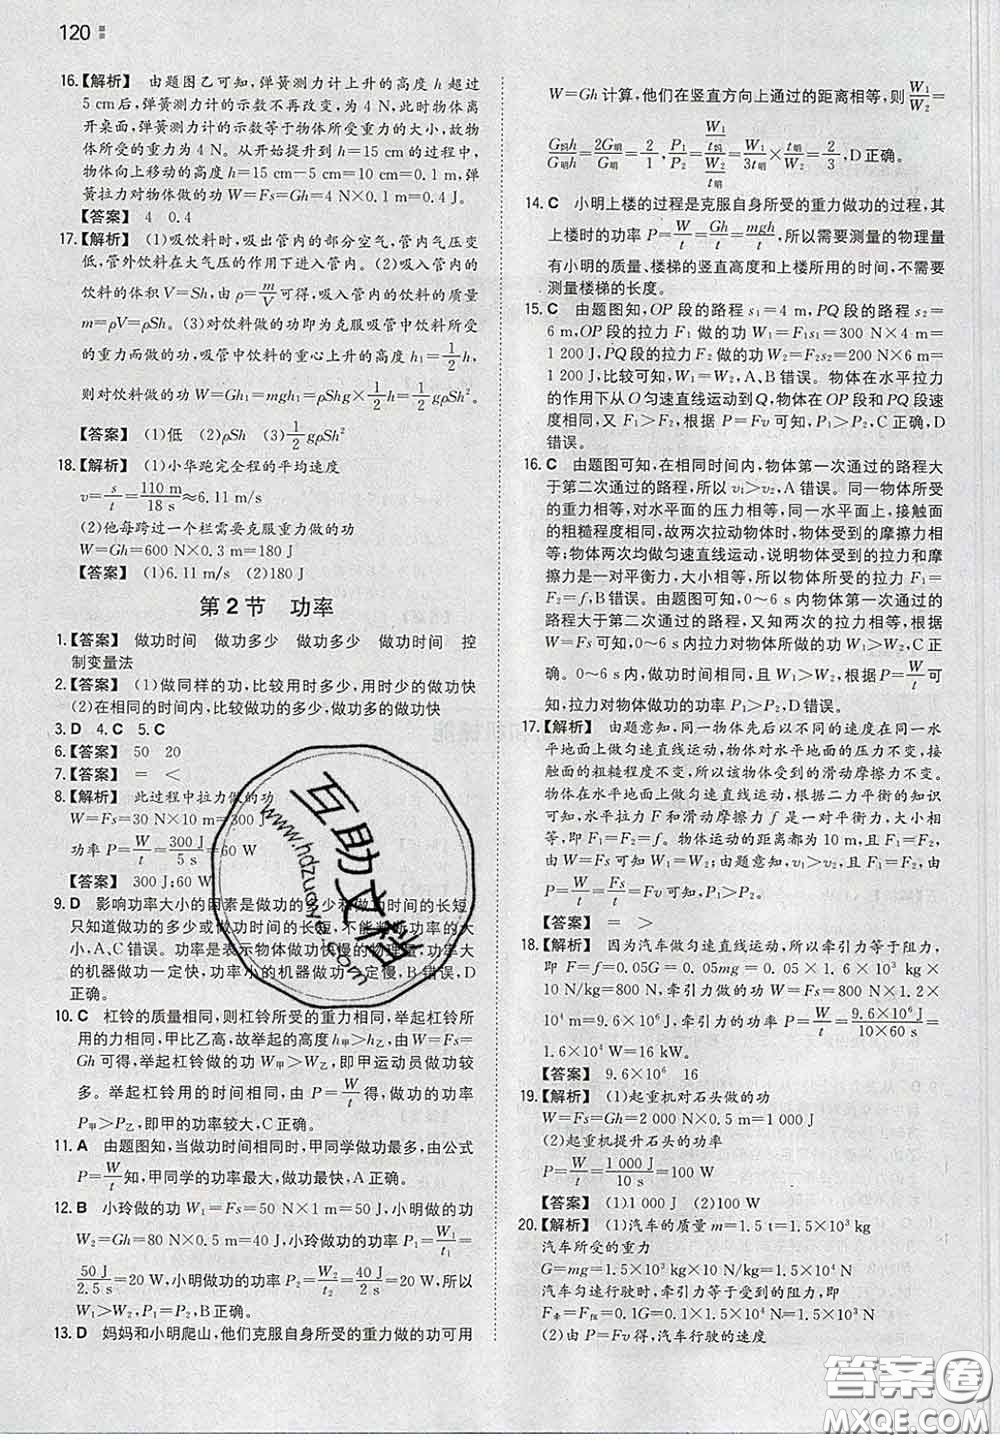 120
16.【解析】 由题图乙可知,弹簧测力计上升的高度 h 超过
5 cm后,弹簧测力计的示数不再改变,为 4 N,此时物体离
开桌面,弹簧测力计的示数等于物体所受重力的大小,故物
体所受的重力为 4 N。从开始提升到 h=15 cm的过程中,
物体向上移动的高度 h=15 cm-5 cm=10 cm=0.1 m,弹
簧拉力对物体做的功 W=Fs=Gh=4 N×0.1 m=0.4 J。
【答案】 4 0.4
17.【解析】 (1)吸饮料时,吸出管内的部分空气,管内气压变
低,管外饮料在大气压的作用下进入管内。(2)吸入管内的
饮料的体积 V=Sh,由 ρ=m/V 可得,吸入管内的饮料的质量
m=ρV=ρSh。(3)对饮料做的功即为克服吸管中饮料所受
的重力而做的功,吸管中饮料的重心上升的高度 h₁=1/2 h,
则对饮料做的功 W=Gh₁=mgh₁=ρShg×1/2 h=1/2 gρSh²。
【答案】 (1)低 (2)ρSh (3)1/2 gρSh²
18.【解析】 (1)小华跑完全程的平均速度
v=s/t=110 m/18 s≈6.11 m/s
(2)他每跨过一个栏需要克服重力做的功
W=Gh=600 N×0.3 m=180 J
【答案】 (1)6.11 m/s (2)180 J
第 2 节 功率
1.【答案】 做功时间 做功多少 做功多少 做功时间 控
制变量法
2.【答案】 (1)做同样的功,比较用时多少,用时少的做功快
(2)在相同的时间内,比较做功的多少,做功多的做功快
3. D 4. C 5. C
6.【答案】 50 20
7.【答案】 = <
8.【解析】 此过程中拉力做的功
W=Fs=30 N×10 m=300 J
功率 P=W/t=300 J/5 s=60 W
【答案】 300 J;60 W
9. D 影响功率大小的因素是做功的多少和做功时间的长短,
只知道做功的多少或做功时间的长短,不能判断功率的大
小,A、C 错误。功率是表示物体做功快慢的物理量,功率大
的机器做功一定快,功率小的机器做功一定慢,B 错误,D
正确。
10. C 杠铃的质量相同,则杠铃所受的重力相同,举起杠铃
所用的力相同,甲比乙高,故举起的高度 h甲>h乙,由 W=
Gh 可得,举起杠铃做的功 W甲>W乙,即甲运动员做功较
多。举起杠铃用的时间相同,由 P=W/t 得,做功的功率
P甲>P乙,即甲的功率较大,C 正确。
11. A 由题图知,当做功时间相同时,甲同学做功最多,由公式
P=W/t 知,甲同学的功率最大,做功最快,A 正确。
12. B 小玲做的功 W₁=Fs=50 N×1 m=50 J,小明做的功
W₂=Gh=80 N×0.5 m=40 J,小玲做功的功率 P₁=W₁/t₁=
50 J/2.5 s=20 W,小明做功的功率 P₂=W₂/t₂=40 J/2 s=20 W,所以
W₁>W₂,P₁=P₂,B 正确。
13. D 妈妈和小明爬山,他们克服自身所受的重力做的功可用
W=Gh 计算,他们在竖直方向上通过的距离相等,则 W₁/W₂=
G妈h/G明h=2G明/G明=2/1,P₁/P₂=(W₁/t妈)/(W₂/t明)=W₁/W₂×t明/t妈=2/1×1/3=2/3,D 正确。
14. C 小明上楼的过程是克服自身所受的重力做功的过程,其
上楼时的功率 P=W/t=Gh/t=mgh/t,所以需要测量的物理量
有小明的质量、楼梯的竖直高度和上楼所用的时间,不需要
测量楼梯的长度。
15. C 由题图知,OP 段的路程 s₁=4 m,PQ 段的路程 s₂=
6 m,OP 段的拉力 F₁ 做的功 W₁=F₁s₁=300 N×4 m=
1 200 J,PQ 段的拉力 F₂ 做的功 W₂=F₂s₂=200 N×6 m=
1 200 J,比较可知,W₁=W₂,A、B 错误。物体在水平拉力
的作用下从 O 匀速直线运动到 Q,物体在 OP 段和 PQ 段速
度相同,又 F₁>F₂,根据 P=Fv 可知,P₁>P₂,C 正确,D
错误。
16. C 由题图可知,在相同时间内,物体第一次通过的路程大
于第二次通过的路程,所以 v₁>v₂,A 错误。同一物体所受
的重力相等,对水平面的压力相等,同一水平面上,接触面
的粗糙程度相同,故两次拉动物体时,物体受到的摩擦力相
等;物体两次均做匀速直线运动,说明物体受到的拉力和摩
擦力是一对平衡力,大小相等,所以物体所受的拉力 F₁=
F₂=f,B 错误。由题图可知,0~6 s 内物体第一次通过的
路程大于第二次通过的路程,又知两次的拉力相等,根据
W=Fs 可知,0~6 s 内拉力对物体做的功 W₁>W₂,C 正
确。因为 0~6 s 内 W₁>W₂,且做功时间相同,根据 P=W/t
知,拉力对物体做功的功率 P₁>P₂,D 错误。
17.【解析】 由题意知,同一物体先后以不同的速度在同一水
平地面上做匀速直线运动,物体对水平地面的压力不变,接
触面的粗糙程度不变,所以该物体受到的滑动摩擦力不变。
物体在水平地面上做匀速直线运动,根据二力平衡的知识
可知,水平拉力 F 和滑动摩擦力 f 是一对平衡力,大小相
等,即 F₁=F₂=f。物体运动的距离都为 10 m,且 F₁=F₂,
由 W=Fs 可知,W₁=W₂。由题意知 v₁>v₂,且 F₁=F₂,由
P=W/t=Fs/t=Fv 可知,P₁>P₂。
【答案】 = >
18.【解析】 因为汽车做匀速直线运动,所以牵引力等于阻力,
即 F=f=0.05G=0.05mg=0.05×1.6×10³ kg×
10 N/kg=800 N,牵引力做的功 W=Fs=800 N×1.2×
10⁴ m=9.6×10⁶ J,牵引力做功的功率 P=W/t=9.6×10⁶ J/10×60 s=
1.6×10⁴ W=16 kW。
【答案】 9.6×10⁶ 16
19.【解析】 (1)起重机对石头做的功
W=Fs=Gh=2 000 N×0.5 m=1 000 J
(2)起重机提升石头的功率
P=W/t=1 000 J/10 s=100 W
【答案】 (1)1 000 J (2)100 W
20.【解析】 (1)汽车的质量 m=1.5 t=1.5×10³ kg
汽车所受的重力
G=mg=1.5×10³ kg×10 N/kg=1.5×10⁴ N
汽车匀速行驶时,牵引力等于受到的阻力,即
F牵=F阻=0.1G=0.1×1.5×10⁴ N=1.5×10³ N
(2)由 P=Fv 得,汽车行驶的速度
互助文档
www.hdzuoye.com
答案圈
MXQE.COM